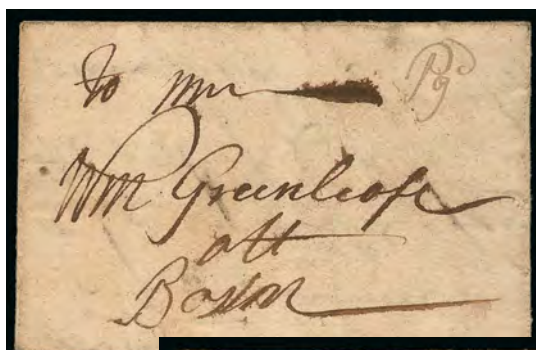 To Mr
Wm Greenleafe
att
Boston